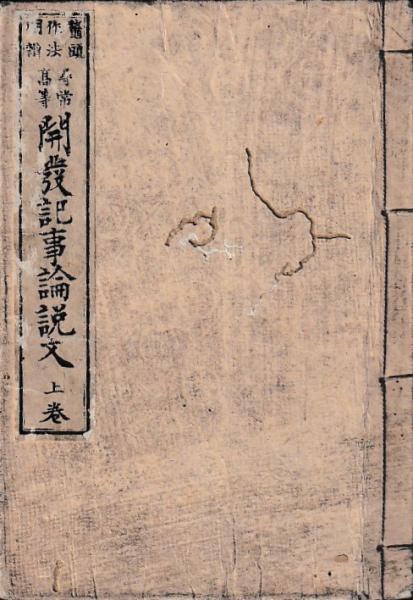 鼇頭
作法
尋常
高等
開發記事論説文
上巻